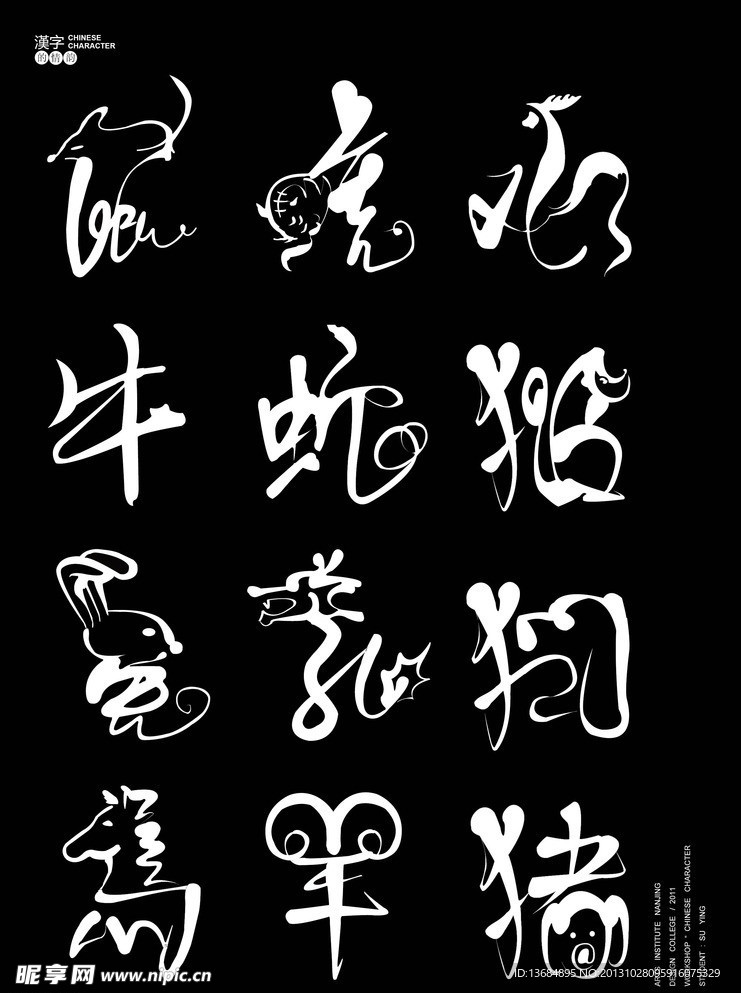 漢字 CHINESE CHARACTER
的情韵
鼠 虎 鸡
牛 蛇 猴
兔 龙 狗
馬 羊 猪
ARTS INSTITUTE NANJING
DESIGN COLLEGE / 2011
WORKSHOP * CHINESE CHARACTER
STUDENT : SU YING
昵享网 www.nipic.cn
ID:13684895 NO:20131028095916075329